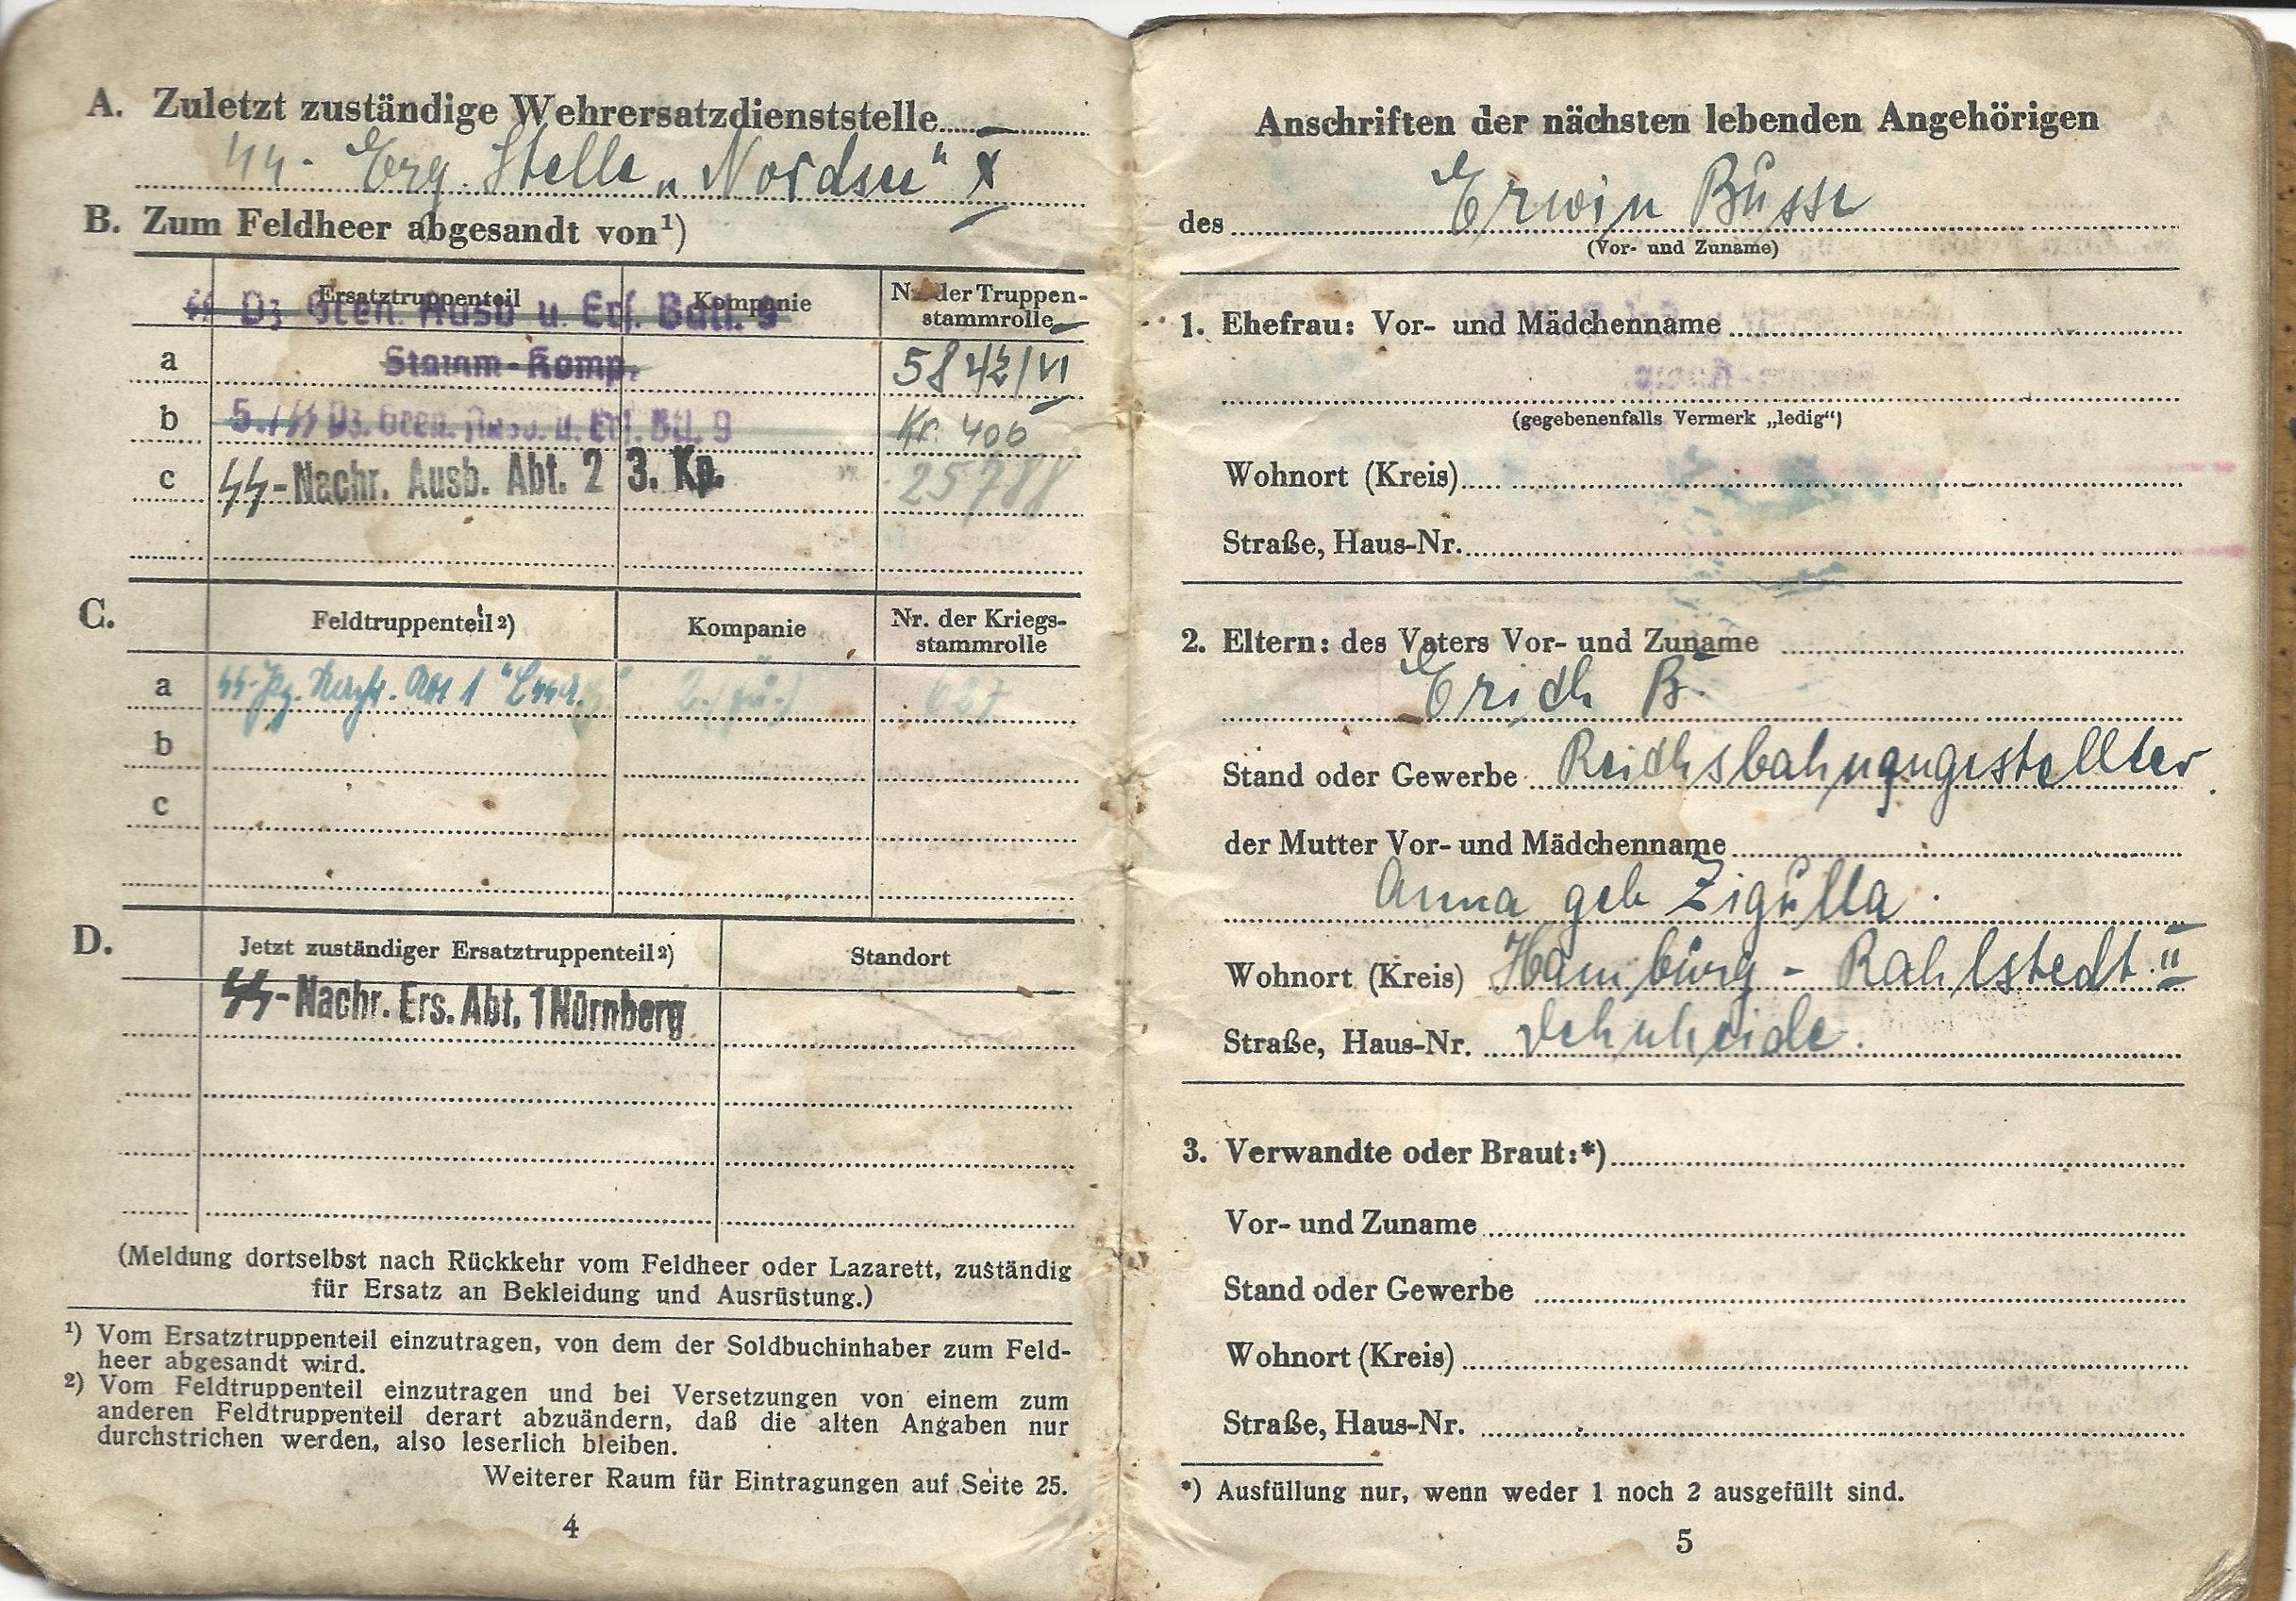 A. Zuletzt zuständige Wehrersatzdienststelle
SS-Erg. Stelle „Nordsee“ X
B. Zum Feldheer abgesandt von¹)
Ersatztruppenteil Kompanie Nr. der Truppen-
stammrolle
SS Pz Gren. Ausb u. Ers. Batl. 9
a Stamm-Komp. 5842/VI
b 5./SS Pz. Gren. Ausb. u. Ers. Btl. 9 Kr. 406
c SS-Nachr. Ausb. Abt. 2 3. Kp. 25788
C. Feldtruppenteil²) Kompanie Nr. der Kriegs-
stammrolle
a SS-Pz. Nachr. Abt 1 2. 627
b
c
D. Jetzt zuständiger Ersatztruppenteil²) Standort
SS-Nachr. Ers. Abt. 1 Nürnberg
(Meldung dortselbst nach Rückkehr vom Feldheer oder Lazarett, zuständig
für Ersatz an Bekleidung und Ausrüstung.)
¹) Vom Ersatztruppenteil einzutragen, von dem der Soldbuchinhaber zum Feld-
heer abgesandt wird.
²) Vom Feldtruppenteil einzutragen und bei Versetzungen von einem zum
anderen Feldtruppenteil derart abzuändern, daß die alten Angaben nur
durchstrichen werden, also leserlich bleiben.
Weiterer Raum für Eintragungen auf Seite 25.
4
Anschriften der nächsten lebenden Angehörigen
des Erwin Busse
(Vor- und Zuname)
1. Ehefrau: Vor- und Mädchenname
(gegebenenfalls Vermerk „ledig“)
Wohnort (Kreis)
Straße, Haus-Nr.
2. Eltern: des Vaters Vor- und Zuname
Erich B.
Stand oder Gewerbe Reichsbahnangestellter
der Mutter Vor- und Mädchenname
Anna geb Zigulla.
Wohnort (Kreis) Hamburg - Rahlstedt II
Straße, Haus-Nr. Dehnheide.
3. Verwandte oder Braut:*)
Vor- und Zuname
Stand oder Gewerbe
Wohnort (Kreis)
Straße, Haus-Nr.
*) Ausfüllung nur, wenn weder 1 noch 2 ausgefüllt sind.
5